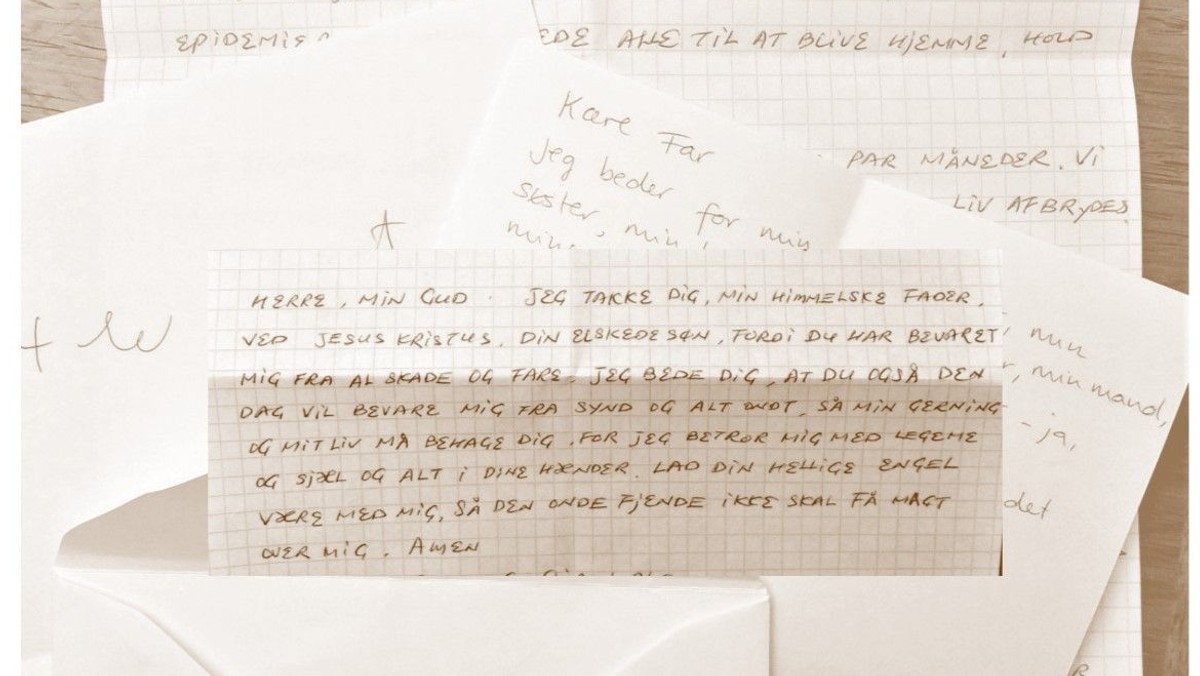 EPIDEMI
EDE ALLE TIL AT BLIVE HJEMME, HOLD
Kære Far
Jeg beder
søster, for min
min, min
PAR MÅNEDER. VI
LIV AFBRYDES
HERRE, MIN GUD. JEG TAKKE DIG, MIN HIMMELSKE FADER,
VED JESUS KRISTUS, DIN ELSKEDE SØN, FORDI DU HAR BEVARET
MIG FRA AL SKADE OG FARE. JEG BEDE DIG, AT DU OGSÅ DEN
DAG VIL BEVARE MIG FRA SYND OG ALT ONDT, SÅ MIN GERNING
OG MIT LIV MÅ BEHAGE DIG. FOR JEG BETROR MIG MED LEGEME
OG SJÆL OG ALT I DINE HÆNDER. LAD DIN HELLIGE ENGEL
VÆRE MED MIG, SÅ DEN ONDE FJENDE IKKE SKAL FÅ MAGT
OVER MIG. AMEN
min
, min mand,
- ja,
det